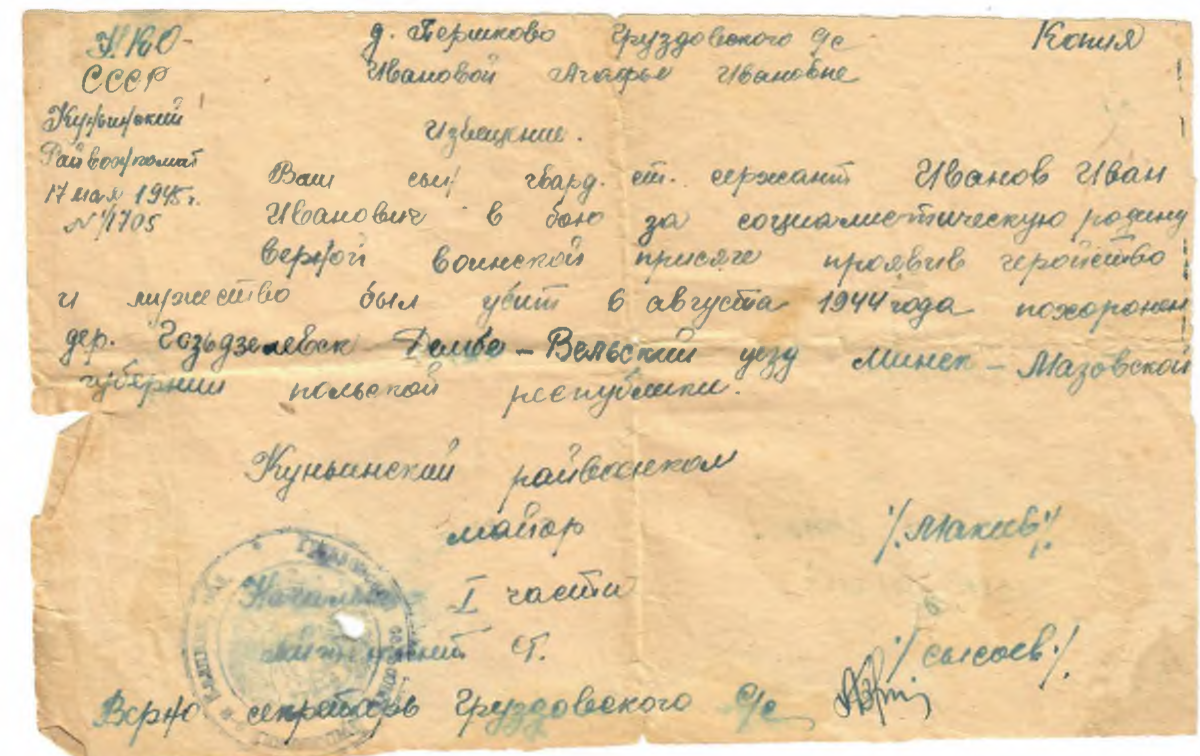 Н.К.О.
СССР
Куньинский
Райвоенкомат
17 мая 1945 г.
№ 1705
д. Першково Груздовского с/с Копия
Ивановой Агафье Ивановне
Извещение.
Ваш сын гвард. ст. сержант Иванов Иван
Иванович в бою за социалистическую родину
верной воинской присяге проявив геройство
и мужество был убит 6 августа 1944 года похоронен
дер. Гозьдзелевск Дембе-Вельский уезд Минск-Мазовской
губернии польской республики.
Куньинский райвоенком
майор /.Макив./
Начальник I части
лейтенант /.Сысоев./
Верно секретарь Груздовского с/с